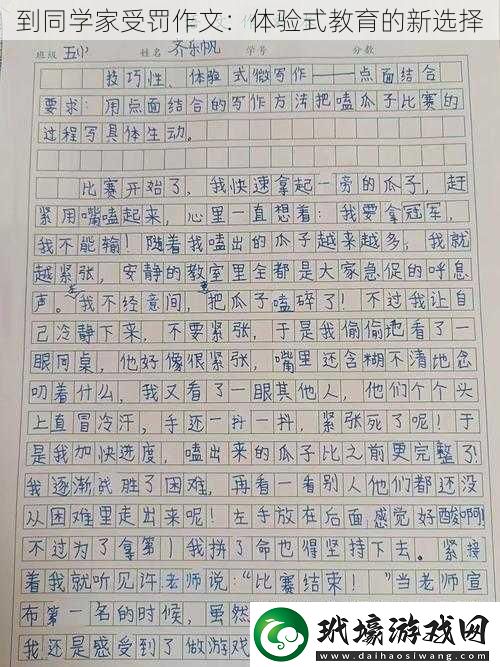 到同学家受罚作文：体验式教育的新选择
班级 五(1) 姓名 齐乐帆 学号 分数
技巧性、体验式微写作——点面结合
要求：用点面结合的写作方法把嗑瓜子比赛的
过程写具体生动。
比赛开始了，我快速拿起一旁的瓜子，赶
紧用嘴嗑起来，心里一直想着：我要拿冠军，
我不能输！随着我嗑出的瓜子越来越多，我就
越紧张，安静的教室里全都是大家急促的呼息
声。我不经意间，把瓜子嗑碎了！不过我让自
己冷静下来，不要紧张，于是我偷偷地看了一
眼同桌，他好像很紧张，嘴里还含糊不清地念
叨着什么，我又看了一眼其他人，他们个个头
上直冒冷汗，手还一抖一抖，紧张死了呢！于
是我加快进度，嗑出来的瓜子比之前更完整了！
我逐渐战胜了困难，再看一看别人他们都还没
从困难里走出来呢！左手放在后面感觉好酸啊！
不过为了拿第1我拼了命也得坚持下去。紧接
着我就听见许老师说：“比赛结束！”当老师宣
布第一名的时候，虽然
我还是感受到了做游戏
玳壕游戏网
www.daihaosiwei.com